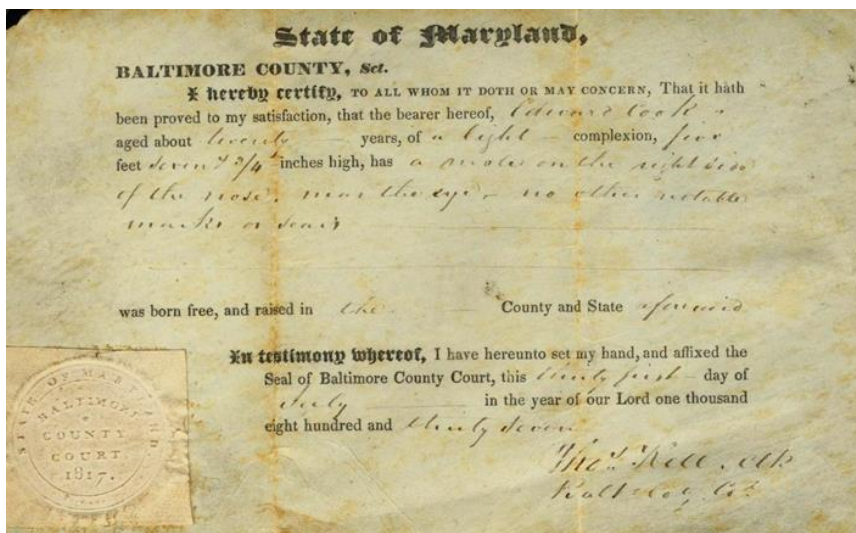 State of Maryland,
BALTIMORE COUNTY, Sct.
I hereby certify, TO ALL WHOM IT DOTH OR MAY CONCERN, That it hath
been proved to my satisfaction, that the bearer hereof, Edward Cook
aged about twenty years, of a light complexion, five
feet seven & 3/4 inches high, has a mole on the right side
of the nose, near the eye - no other notable
marks or scars
was born free, and raised in the County and State aforesaid
In testimony whereof, I have hereunto set my hand, and affixed the
Seal of Baltimore County Court, this thirty first day of
July in the year of our Lord one thousand
eight hundred and thirty seven
Thos. Kell Clk
Balt Co Ct
STATE OF MARYLAND.
BALTIMORE
COUNTY
COURT
1817.